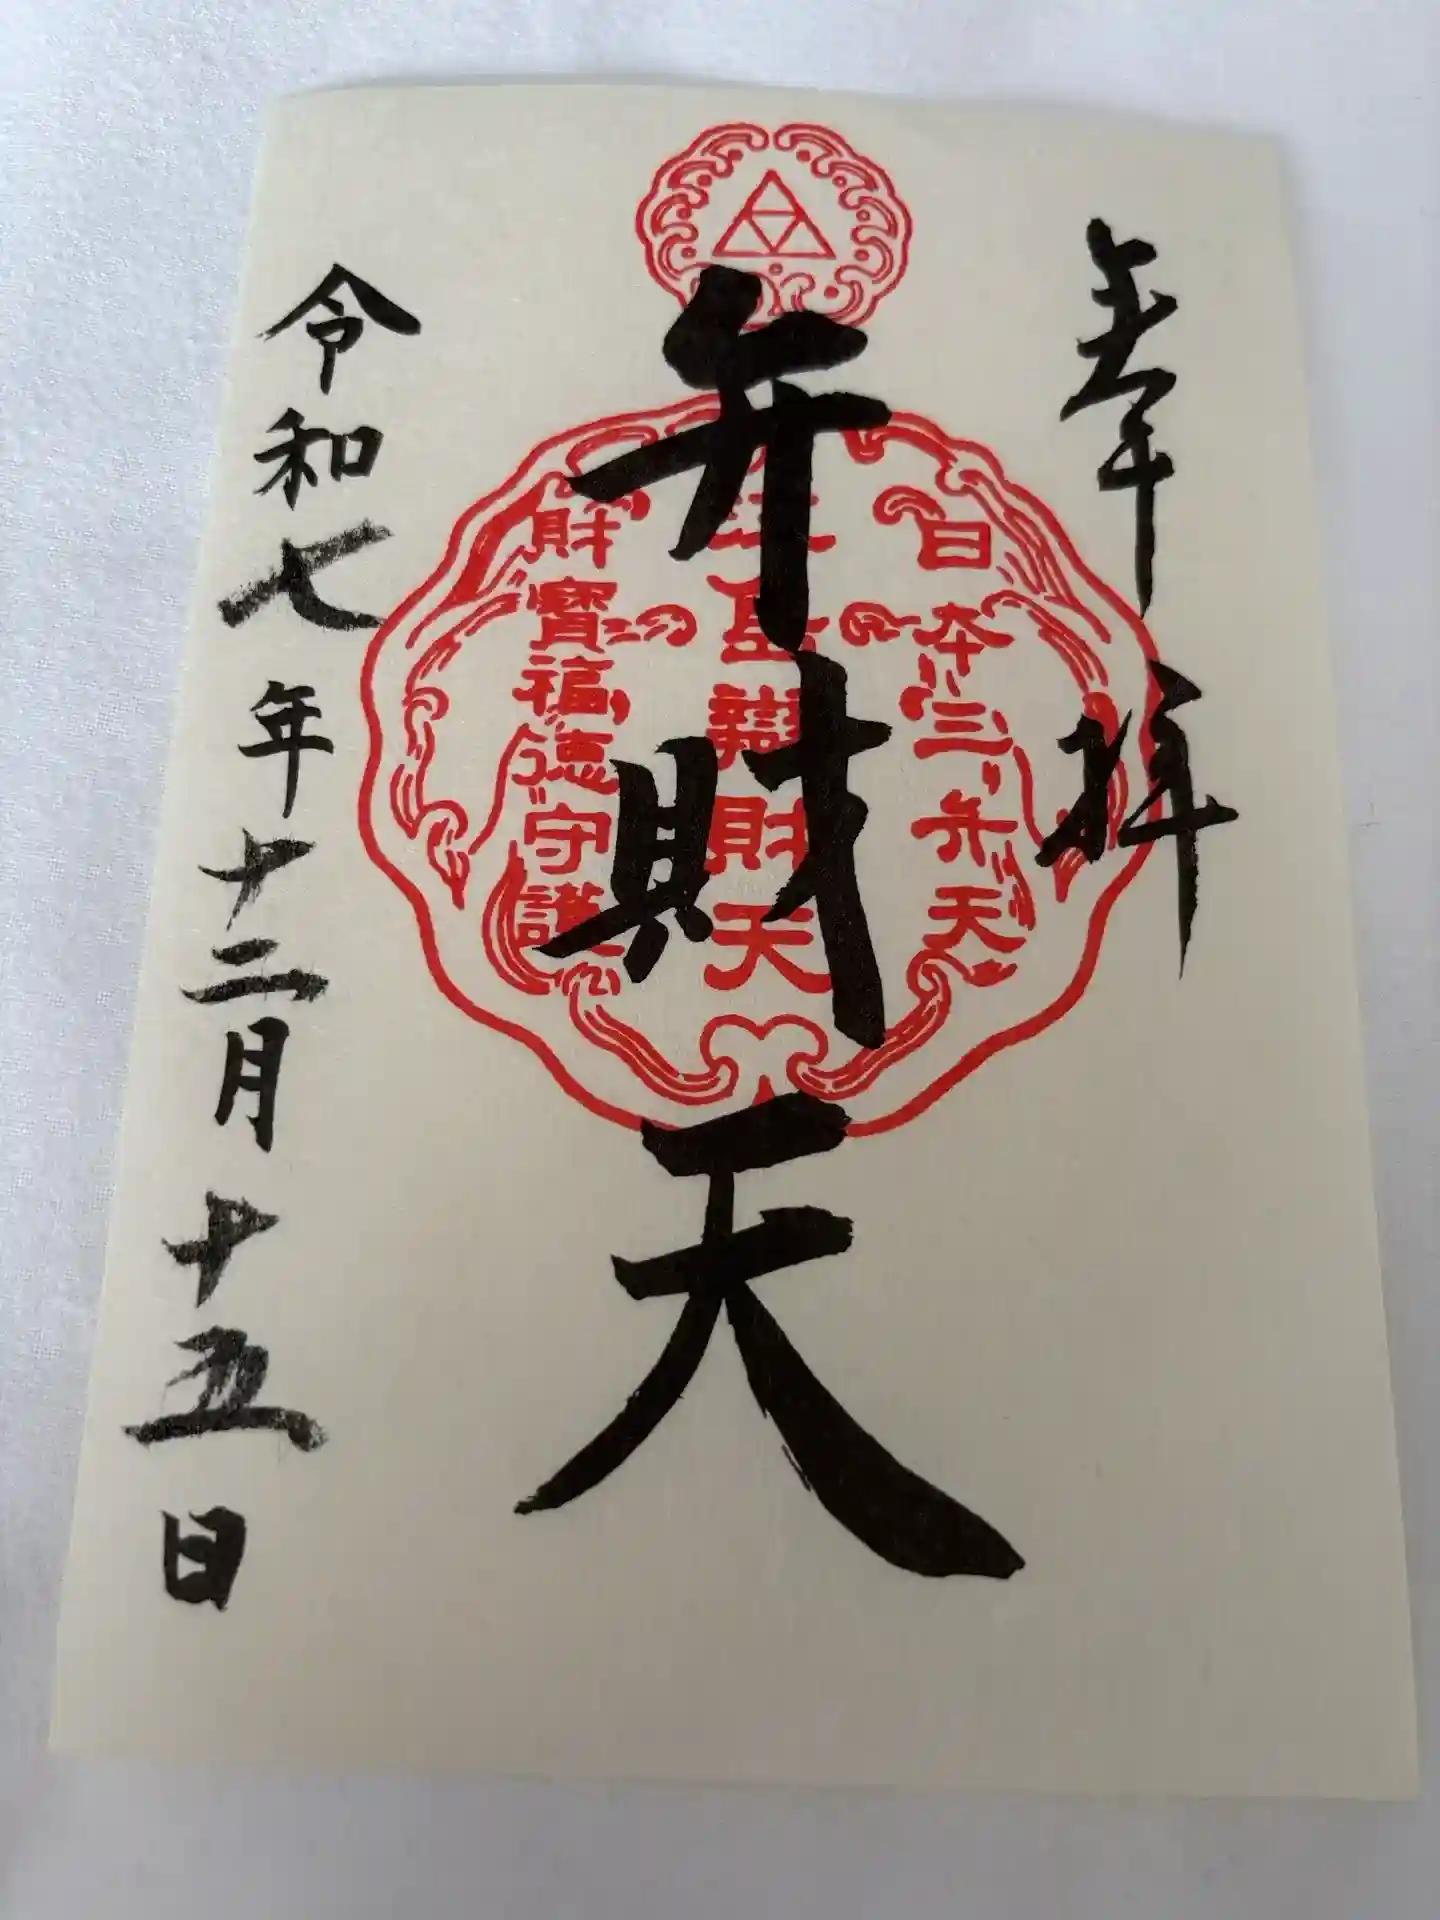 奉拝
日本三弁天
弁財天
島辯財天
財寶福徳守護
令和七年十二月十五日